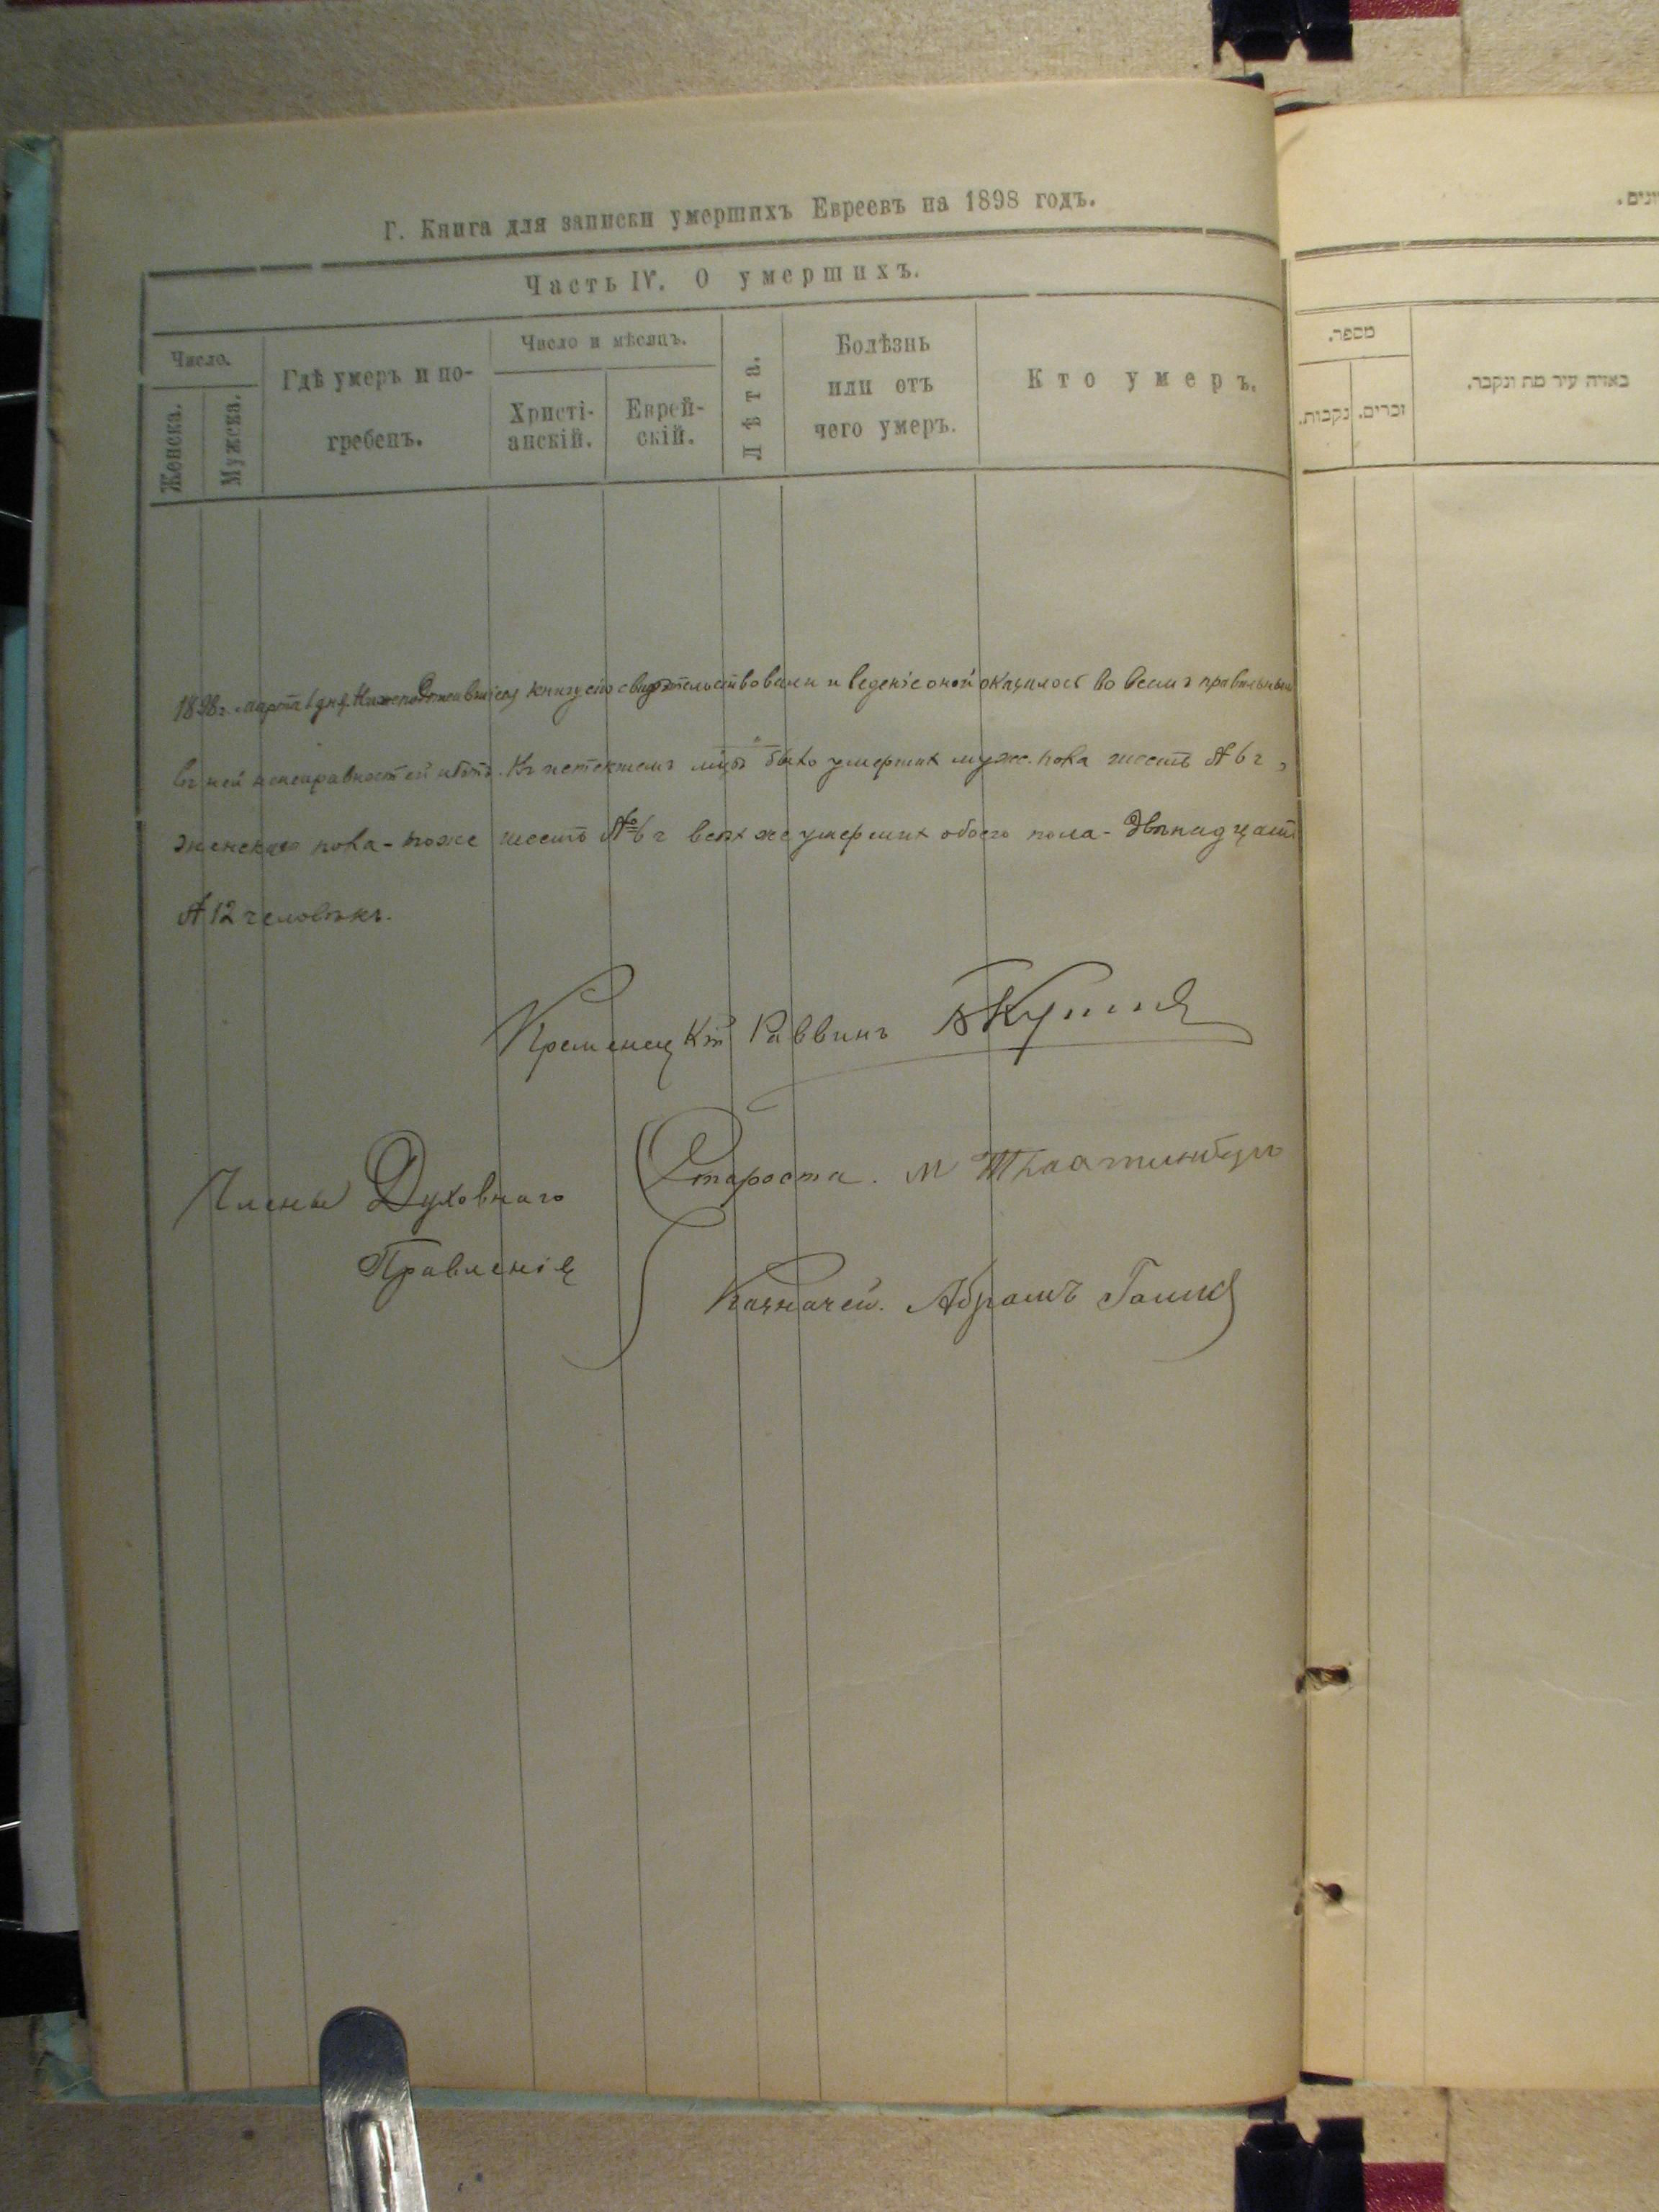 Г. Книга для записки умершихъ Евреевъ на 1898 годъ.
Часть IV. О умершихъ.
Число.
Женска.
Мужска.
Гдѣ умеръ и по-
гребенъ.
Число и мѣсяцъ.
Христі-
анскій.
Еврей-
скій.
Лѣта.
Болѣзнь
или отъ
чего умеръ.
Кто умеръ.
1898г. марта 1 дня. книгу сію свидѣтельствовали и веденіе оной оказалось во всемъ правильнымъ
въ ней неисправностей нѣтъ. Къ истекшему было умершихъ муж. пола шесть № 6 ч,
женскаго пола - тоже шесть № 6 ч всѣх же умерших обоего пола - Двѣнадцать
№ 12 человѣкъ.
Кременецкій Раввинъ
Члены Духовнаго
Правленія
Староста. М
Казначей. Абрамъ
מספר.
נקבות.
זכרים.
באיזה עיר מת ונקבר.